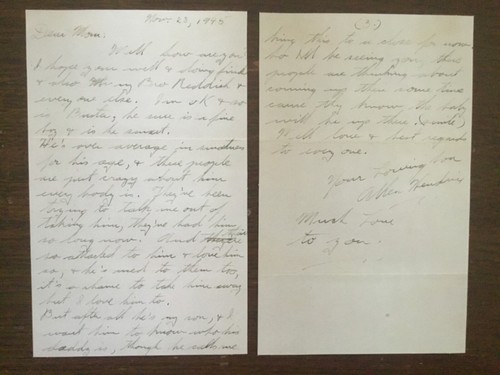 Nov. 23, 1945
Dear Mom.
Well how are you
I hope your well & doing fine
& also Mr
every one else. I'm OK & so
is he sure is a fine
boy & is he smart.
He's over average in smartness
for his age, & these people
are just crazy about him
every body is. They've been
trying to talk me out of
taking him, they've had him
so long now. And
so attached to him & love him
so, & he's used to them too,
it's a shame to take him away
but I love him to.
But after all he's my son, & I
want him to know who his
daddy is, though he calls me
(2)
bring this to a close for now.
So I'll be seeing you, these
people are thinking about
coming up there some time
cause they know the baby
will be up there. (smile)
Well love & best regards
to every one.
Your Loving Son
Allen
Much Love
to you.